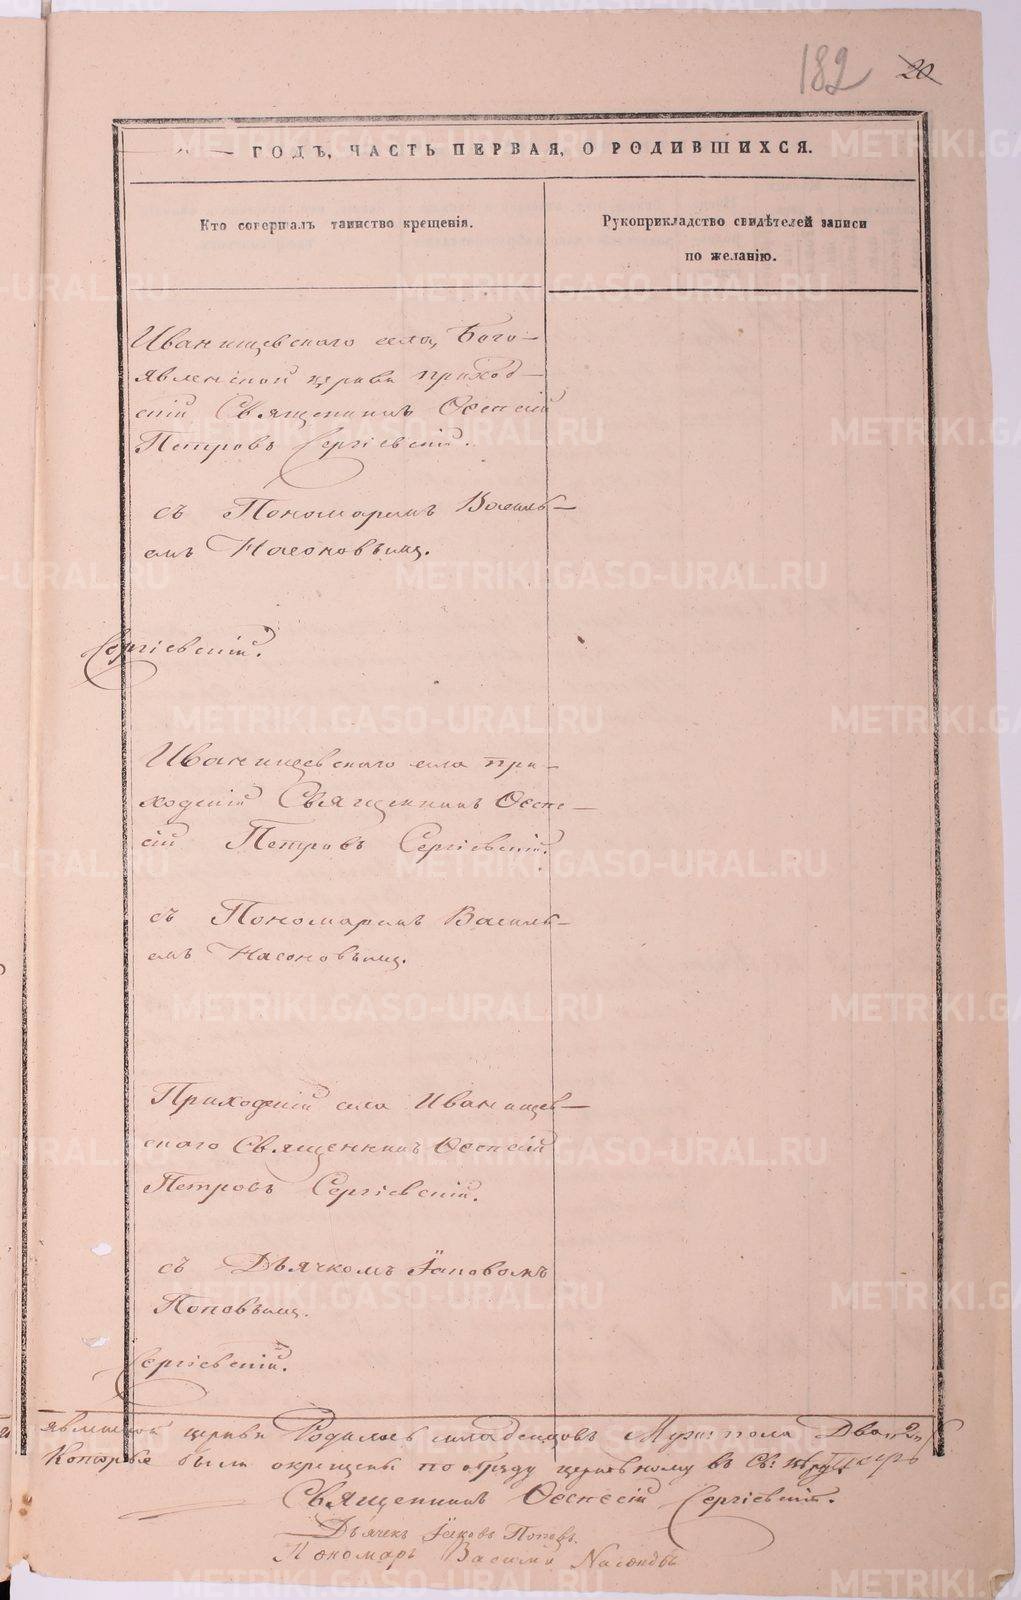 182 20
ГОДЪ, ЧАСТЬ ПЕРВАЯ, О РОДИВШИХСЯ.
Кто совершалъ таинство крещенія.
Рукоприкладство свидѣтелей записи
по желанію.
Иванищевскаго села, Бого-
явленской церкви приход-
скій Священникъ
Петровъ Сергіевскій.
съ Пономаремъ Василь-
емъ Насоновымъ.
Сергіевскій.
Иванищевскаго села при-
ходскій Священникъ
Петровъ Сергіевскій.
съ Пономаремъ Василь-
емъ Насоновымъ.
Приходскій села Иванищев-
скаго Священникъ
Петровъ Сергіевскій.
съ Дьячкомъ Іаковомъ
Поповымъ.
Сергіевскій.
явленской церкви Родилось младенцовъ Муж: пола Два
Которые были окрещены по обряду церковному въ Св:
Священникъ Сергіевскій.
Дьячекъ Іаковъ Поповъ.
Пономарь Василий Насоновъ
METRIKI.GASO-URAL.RU